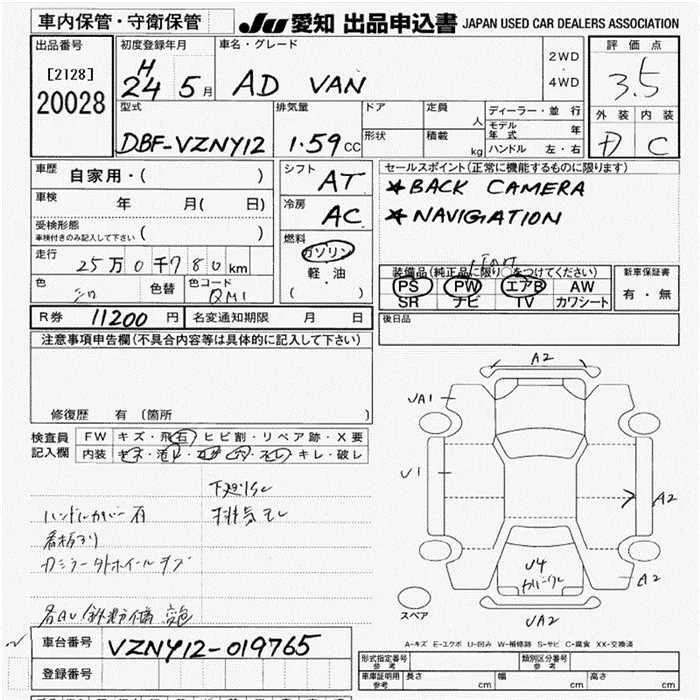 車内保管・守衛保管
JU 愛知 出品申込書 JAPAN USED CAR DEALERS ASSOCIATION
出品番号
[2128]
20028
初度登録年月
H
24 5月
車名・グレード
AD VAN
2WD
・
4WD
評価点
3.5
外装 内装
C
型式
DBF-VZNY12
排気量
1.59cc
ドア
定員
人
形状
積載
kg
ディーラー・並行
モデル年式 年
ハンドル 左・右
車歴
自家用・( )
車検 年 月( 日)
受検形態
車検付きのみ記入して下さい ( )
走行
25万0千780km
色
シロ
色替
色コード
QM1
シフト
AT
冷房
AC
燃料
ガソリン
軽・油
( )
セールスポイント(正常に機能するものに限ります)
★BACK CAMERA
★NAVIGATION
装備品(純正品に限り○をつけてください)
PS PW エアB AW
SR ナビ TV カワシート
新車保証書
有・無
R券 11200円
名変通知期限 月 日
後日品
注意事項申告欄(不具合内容等は具体的に記入して下さい)
修復歴 有 (箇所 )
検査員
記入欄
FW キズ・飛石 ヒビ割・リペア跡・X要
内装 キレ・破レ
下廻りサビ
ハンドルカバー有
排気モレ
看板アリ
各AU 鉄粉
A2
UA1
U1
A2
U4
A2
UA2
スペア
A-キズ E-エクボ U-凹み W-補修跡 S-サビ C-腐食 XX-交換済
車台番号
VZNY12-019765
登録番号
形式指定番号
参考
類別区分番号
参考
車庫証明用
参考
長さ cm
幅 cm
高さ cm